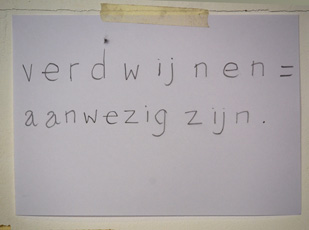 verdwijnen =
aanwezig zijn.